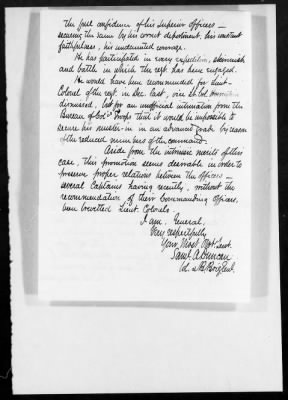 the full confidence of his superior officers —
securing the same by his correct deportment, his constant
faithfulness, his undaunted courage.
He has participated in every expedition, skirmish
and battle in which the regt. has been engaged.
He would have been recommended for Lieut-
Colonel of the regt. in Dec. last, vice Lt. Col.
dismissed, but for an unofficial intimation from the
Bureau of Cold Troops that it would be impossible to
secure his muster-in in an advanced grade by reason
of the reduced numbers of the command.
Aside from the intrinsic merits of this
case, this promotion seems desirable in order to
preserve proper relations between the officers —
several Captains having recently, without the
recommendation of their Commanding Officers,
been brevetted Lieut. Colonels
I am, General,
Very respectfully
Your Most Obt. Servt.
Saml. A. Duncan
Col. & Bt. Brig Genl.